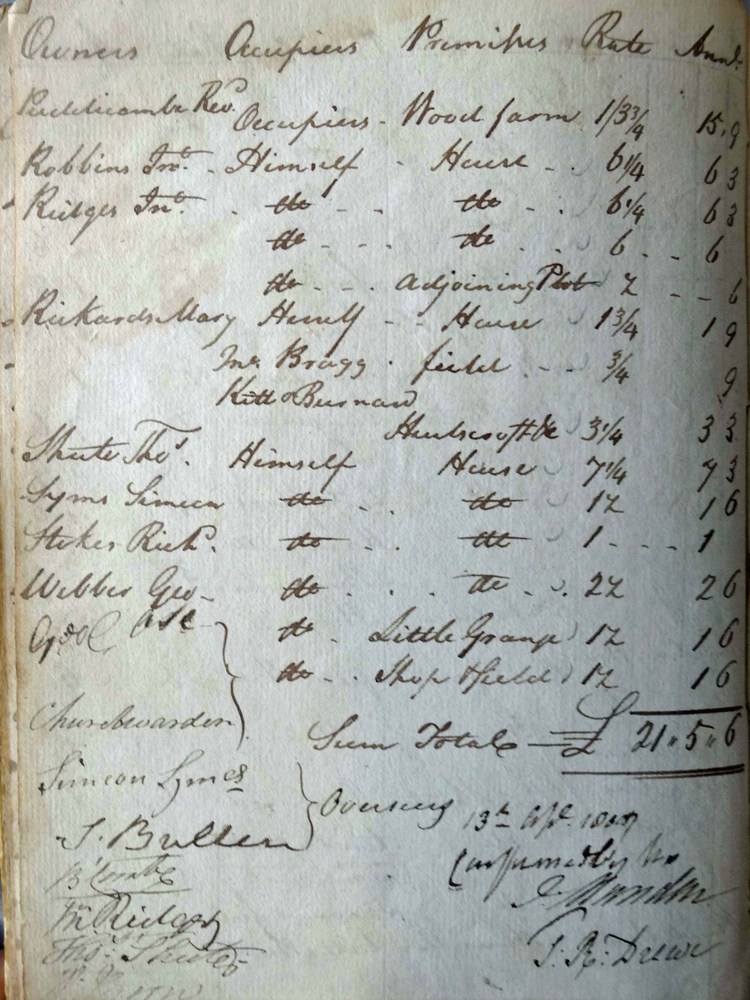 Owners Occupiers Premises Rate Amt.
Puddicombe Revd. Occupiers - Wood farm 1/3¾ 15.9
Robbins Jno. - Himself - House - - 6¼ 6 3
Ridges Jno. - do - - do - - 6¼ 6 3
do - - - do - - 6 - - 6
do - - - Adjoining Plot ½ - - 6
Rickards Mary Herself - - House 1¾ 1 9
Jno. Bragg - field - - - ¾ 9
Kitt & Burnard
3¼ 3 3
Shute Thos. Himself House 7¼ 7 3
Syms Simeon do - - do 1½ 1 6
Stokes Richd. do - - do 1 - - - 1
Webber Geo - do - - - do - - 2½ 2 6
do - Little Grump 1½ 1 6
do - - Shop & field 1½ 1 6
Churchwarden
Sum Total £ 21 " 5 " 6
Simeon Symes
Overseers
J. Bullen
13th Apl.
Confirmed by us
B Combe
Jn Ridges
Thos. Shute
J. R. Drewe